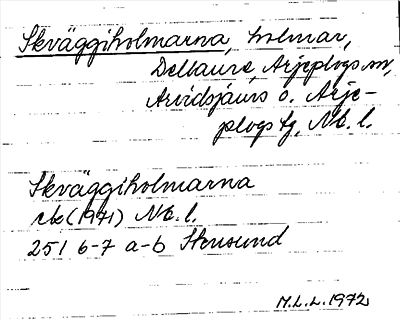 Skväggiholmarna, holmar,
Dellaure, Arjeplogs sn,
Arvidsjaurs o. Arje-
plogs tg, Nb. l.
Skväggiholmarna
rbc (1971) Nb. l.
25I 6-7 a-b Stensund
M.L.L. 1972